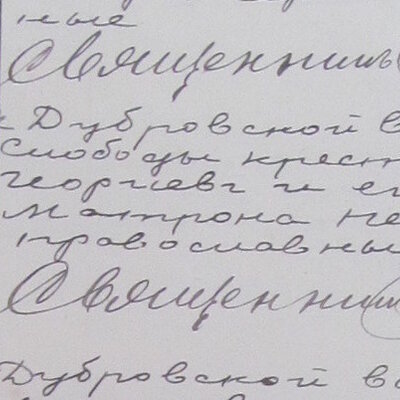 ные
Священникъ
Дубровской в
Слободы крест
Георгiевъ и ег
Матрона Не
православны
Священник
Дубровской во